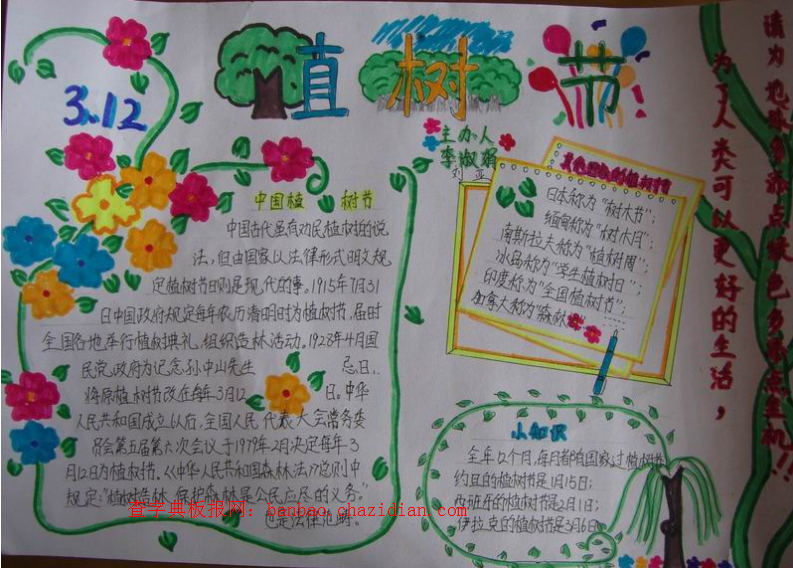 3.12
植树节
主办人
李淑娟
刘亚
中国植树节
中国古代虽有劝民植树的说
法，但由国家以法律形式明文规
定植树节日则是现代的事。1915年7月31
日中国政府规定每年农历清明时为植树节，届时
全国各地举行植树典礼，组织造林活动。1928年4月国
民党政府为记念孙中山先生忌日、
将原植树节改在每年3月12日。中华
人民共和国成立以后，全国人民代表大会常务委
员会第五届第六次会议于1979年2月决定每年3
月12日为植树节、《中华人民共和国森林法》总则中
规定："植树造林，保护森林是公民应尽的义务。"
也是法律范畴。
日本称为"树木节"；
缅甸称为"树木月"；
南斯拉夫称为"植树周"；
冰岛称为"学生植树日"；
印度称为"全国植树节"；
加拿大称为"森林
小知识
全年12个月，每月都有国家过植树节
约旦的植树节是1月15日；
西班牙的植树节是2月1日；
伊拉克的植树节是3月6日
为了人类可以更好的生活，
请为地球多添点绿色多添点生机！！
查字典板报网：banbao.chazidian.com